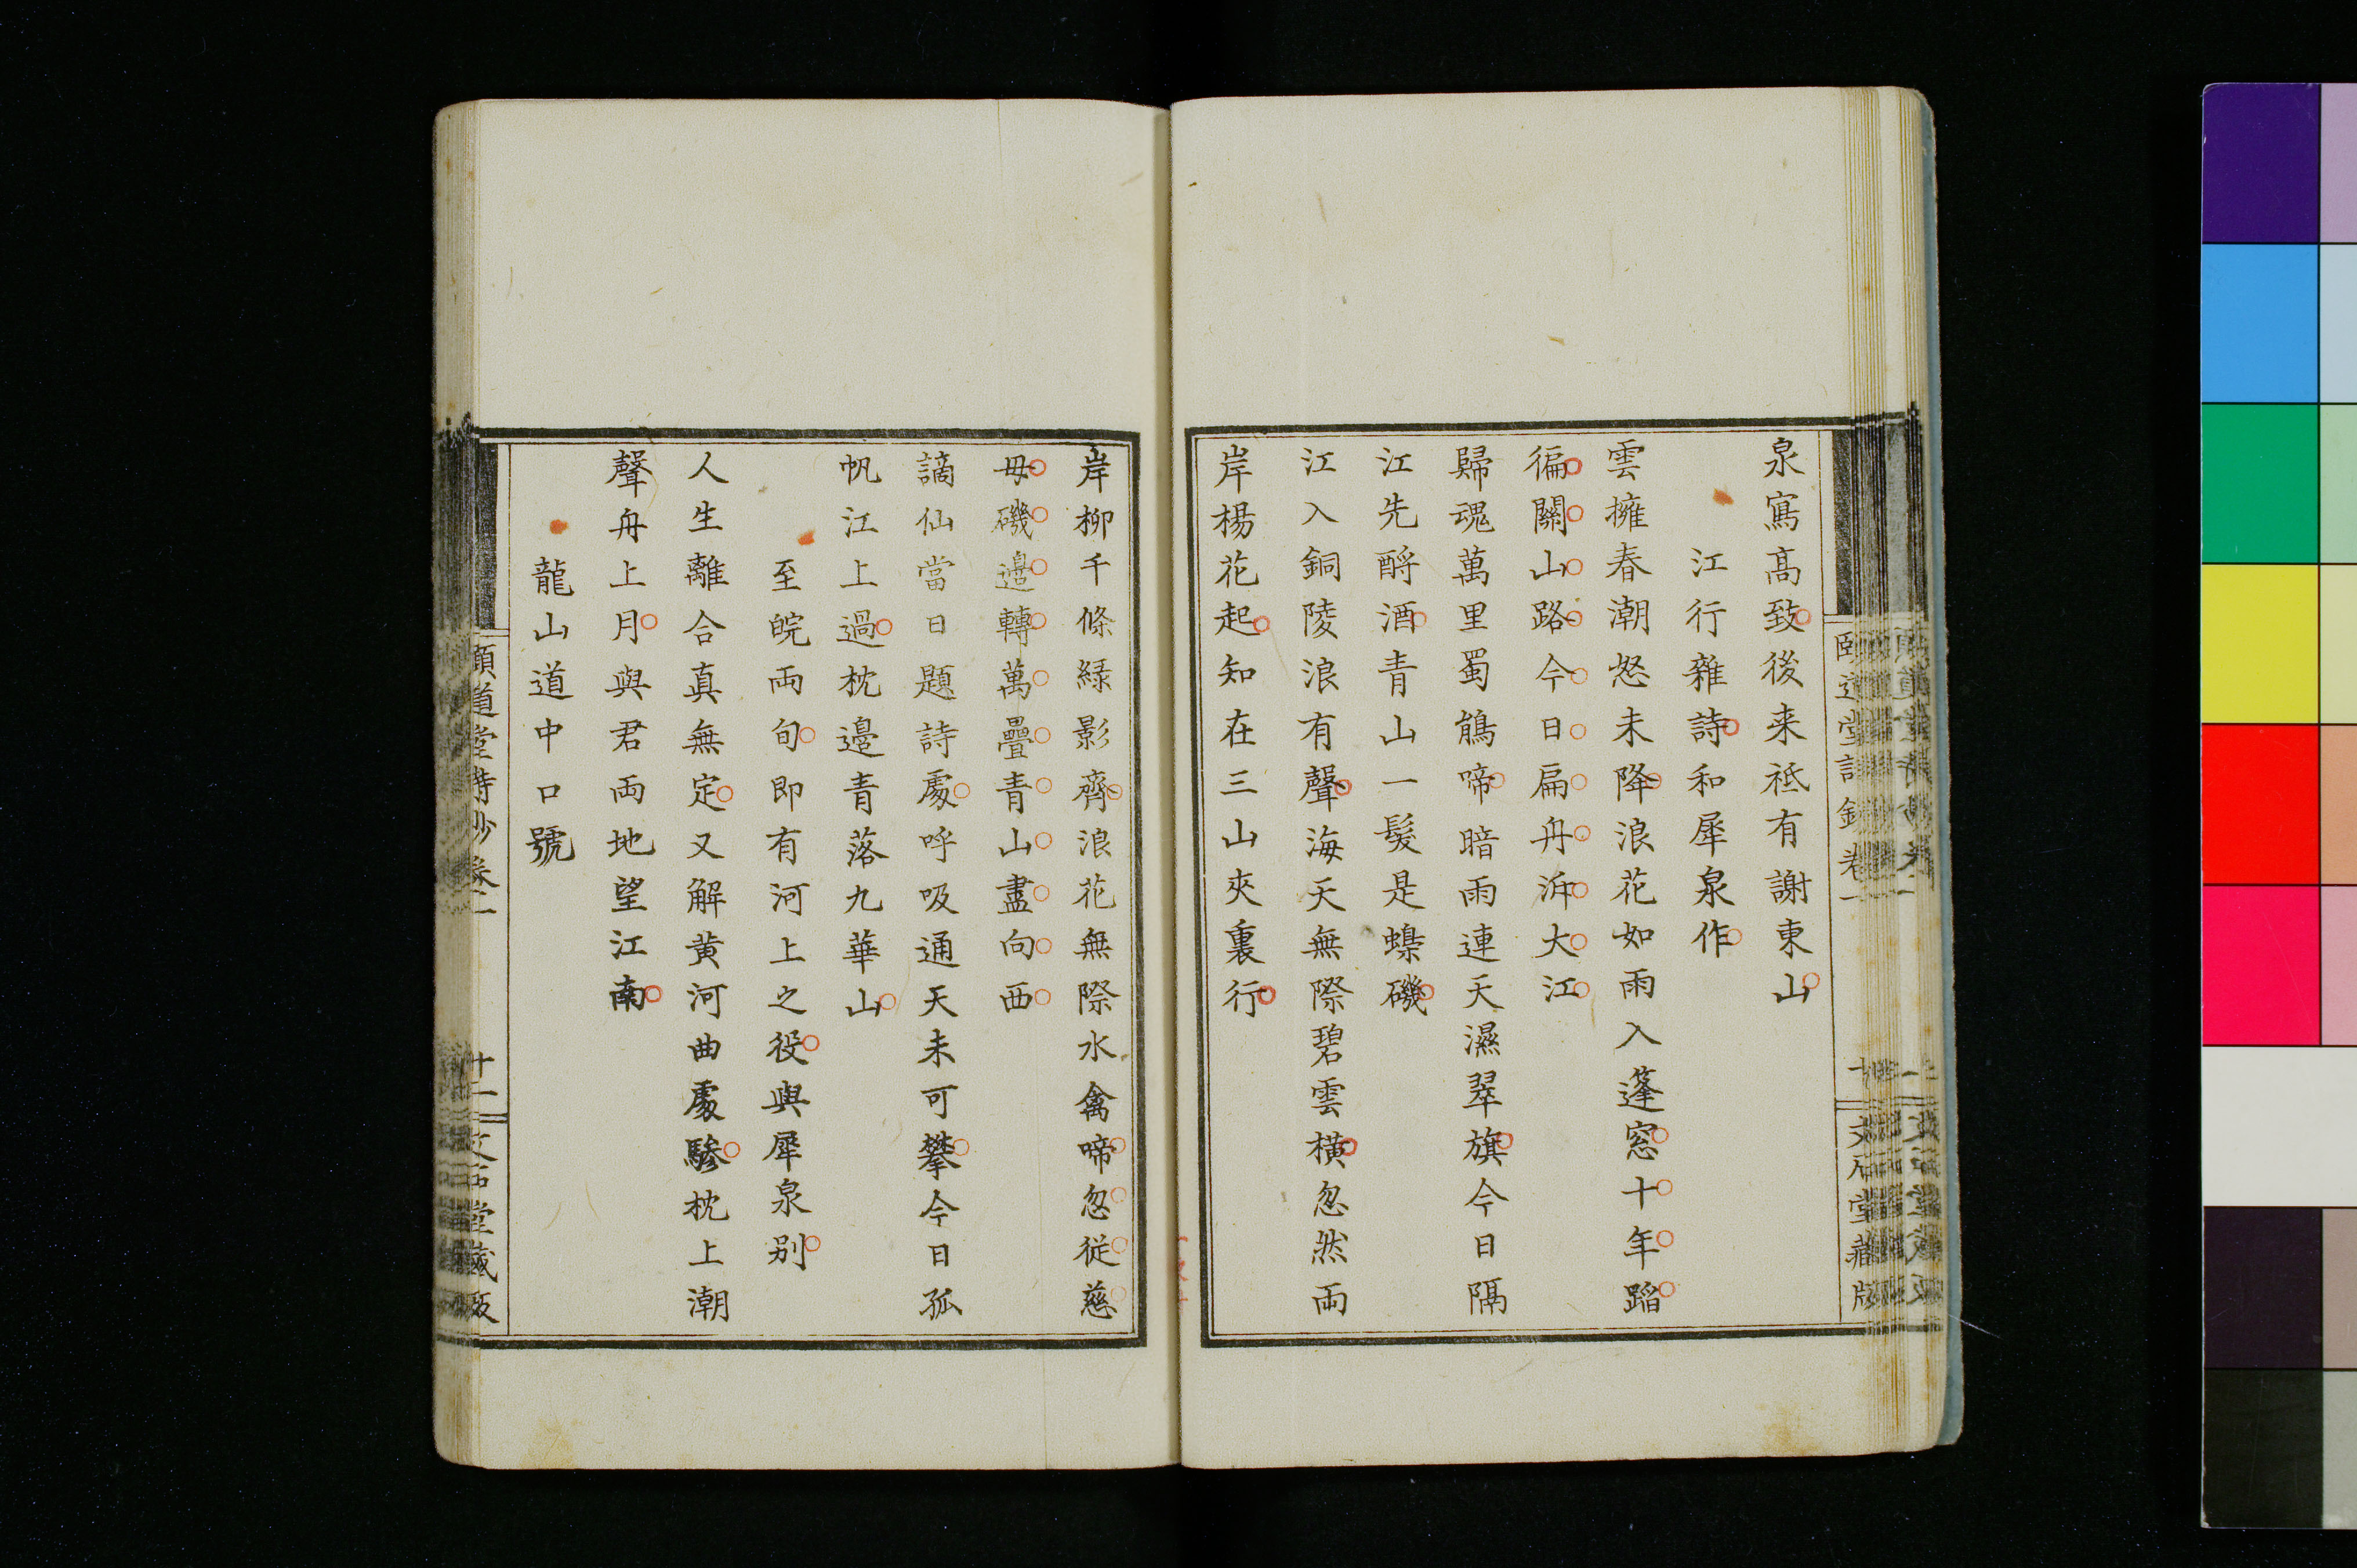 泉寫高致後来祗有謝東山
江行雜詩和犀泉作
雲擁春潮怒未降浪花如雨入篷窓十年蹈
徧關山路今日扁舟泝大江
歸魂萬里蜀鵑啼暗雨連天濕翠旗今日隔
江先酹酒青山一髮是蟂磯
江入銅陵浪有聲海天無際碧雲橫忽然両
岸楊花起知在三山夾裏行
岸柳千條緑影齊浪花無際水禽啼忽従慈
毋磯邊轉萬疊青山盡向西
謫仙當日題詩處呼吸通天未可攀今日孤
帆江上過枕邊青落九華山
至皖両旬即有河上之役與犀泉別
人生離合真無定又解黄河曲處驂枕上潮
聲舟上月與君両地望江南
龍山道中口號
頤道堂詩鈔卷一
十二
文石堂藏版